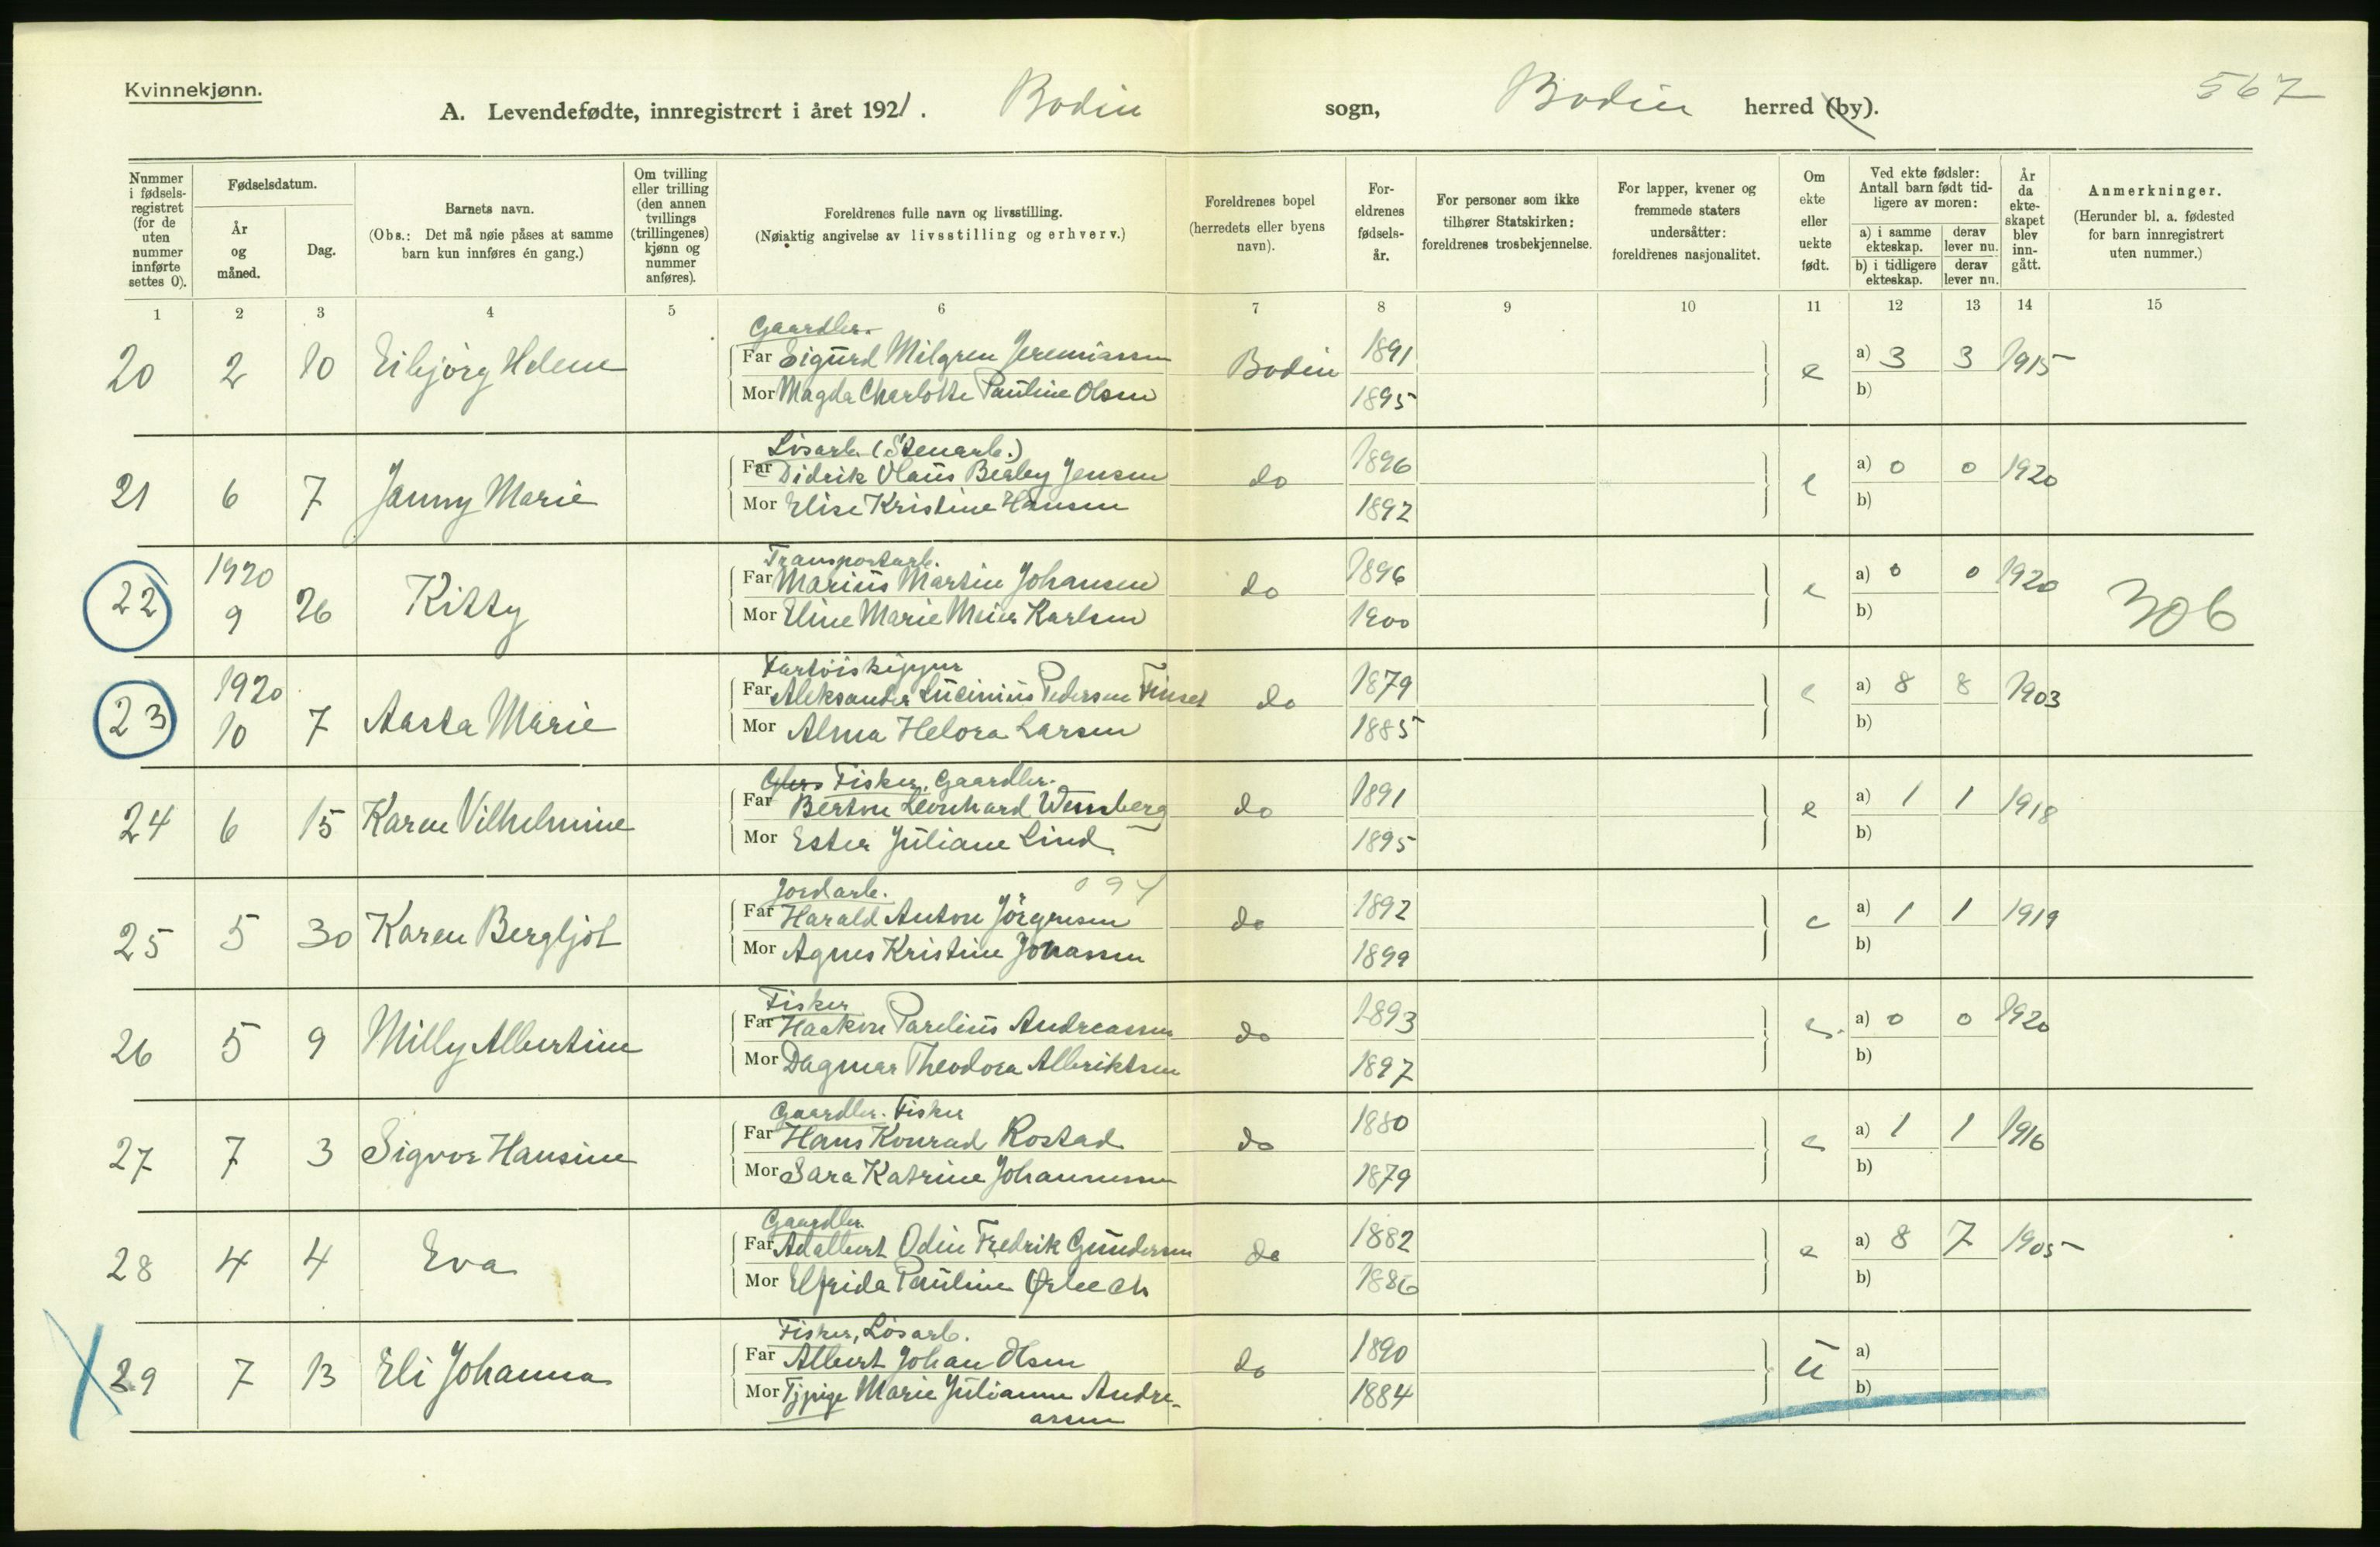 Kvinnekjønn.
567
A. Levendefødte, innregistrert i året 1921. Bodin sogn, Bodin herred (by).
Nummer i fødsels-registret (for de uten nummer innførte settes 0).
Fødselsdatum.
År og måned.
Dag.
Barnets navn.
(Obs.: Det må nøie påses at samme barn kun innføres én gang.)
Om tvilling eller trilling (den annen tvillings (trillingenes) kjønn og nummer anføres).
Foreldrenes fulle navn og livsstilling.
(Nøiaktig angivelse av livsstilling og erhverv.)
Foreldrenes bopel (herredets eller byens navn).
For-eldrenes fødsels-år.
For personer som ikke tilhører Statskirken: foreldrenes trosbekjennelse.
For lapper, kvener og fremmede staters undersåtter: foreldrenes nasjonalitet.
Om ekte eller uekte født.
Ved ekte fødsler: Antall barn født tid-ligere av moren:
a) i samme ekteskap. derav lever nu.
b) i tidligere ekteskap. derav lever nu.
År da ekte-skapet blev inn-gått.
Anmerkninger.
(Herunder bl. a. fødested for barn innregistrert uten nummer.)
1 2 3 4 5 6 7 8 9 10 11 12 13 14 15
Gaardbr.
20 2 10 Eibjörg Helene Far Sigurd Milgren Jeremiassen Bodin 1891 e a) 3 3 1915
Mor Magda Charlotte Pauline Olsen 1895 b)
Lösarb. (Stenarb.)
21 6 7 Janny Marie Far Didrik Olaus Berby Jensen do 1896 e a) 0 0 1920
Mor Elise Kristine Hansen 1892 b)
Transportarb.
22 1920 9 26 Kitty Far Marius Martin Johansen do 1896 e a) 0 0 1920 306
Mor Eline Marie Meier Karlsen 1900 b)
Fartöiskipper
23 1920 10 7 Aasta Marie Far Aleksander Lucinius Pedersen Finset do 1879 e a) 8 8 1903
Mor Alma Helora Larsen 1885 b)
Fisker, Gaardbr.
24 6 15 Karen Vilhelmine Far Berton Leonhard Wennberg do 1891 e a) 1 1 1918
Mor Ester Juliane Lind 1895 b)
Jordarb. 094
25 5 30 Karen Bergljot Far Harald Anton Jörgensen do 1892 e a) 1 1 1919
Mor Agnes Kristine Jonassen 1899 b)
Fisker
26 5 9 Milly Albertine Far Haakon Parelius Andreassen do 1893 e. a) 0 0 1920
Mor Dagmar Theodora Albriktsen 1897 b)
Gaardbr. Fisker
27 7 3 Sigvor Hansine Far Hans Konrad Rostad do 1880 e a) 1 1 1916
Mor Sara Katrine Johannessen 1879 b)
Gaardbr.
28 4 4 Eva Far Adalbert Odin Fredrik Gundersen do 1882 e a) 8 7 1905
Mor Elfrida Pauline Ørbech 1886 b)
Fisker, Lösarb.
29 7 13 Eli Johanna Far Albert Johan Olsen do 1890 u a)
Mor Tjpige Marie Julianne Andre-
assen 1884 b)